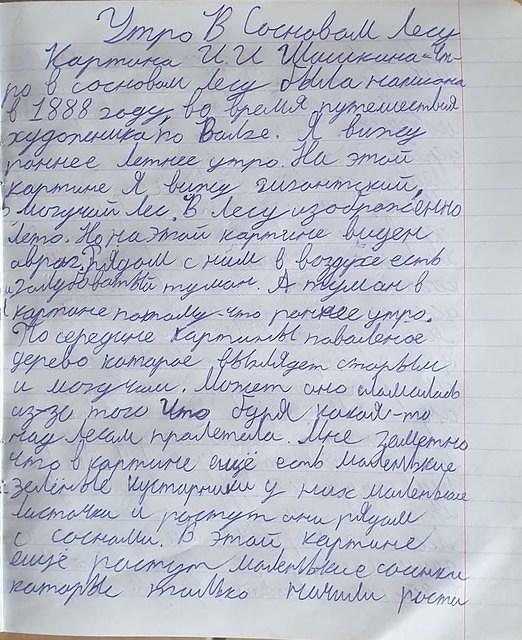 Утро В Сосновом Лесу
Картина И.И Шишкина "Ут-
ро в сосновом лесу была написана
в 1888 году, во время путешествия
художника, по Волге. Я вижу
раннее летнее утро. На этой
картине я вижу гигантский,
могучий лес. В лесу изображенно
лето. Но, на этой картине виден
овраг. Рядом с ним в воздухе есть
голубоватый туман. А туман в
картине потому-что раннее утро.
По середине картины поваленое
дерево которое выглядет старым
и могучим. Может оно сломалось
из-за того что буря какая-то
над лесом пролетела. Мне заметно
что в картине ещё есть маленькие
зелёные кустарники у них маленькие
листочки и растут они рядом
с соснами. В этой картине
ещё растут маленькие сосенки
которые только начили расти